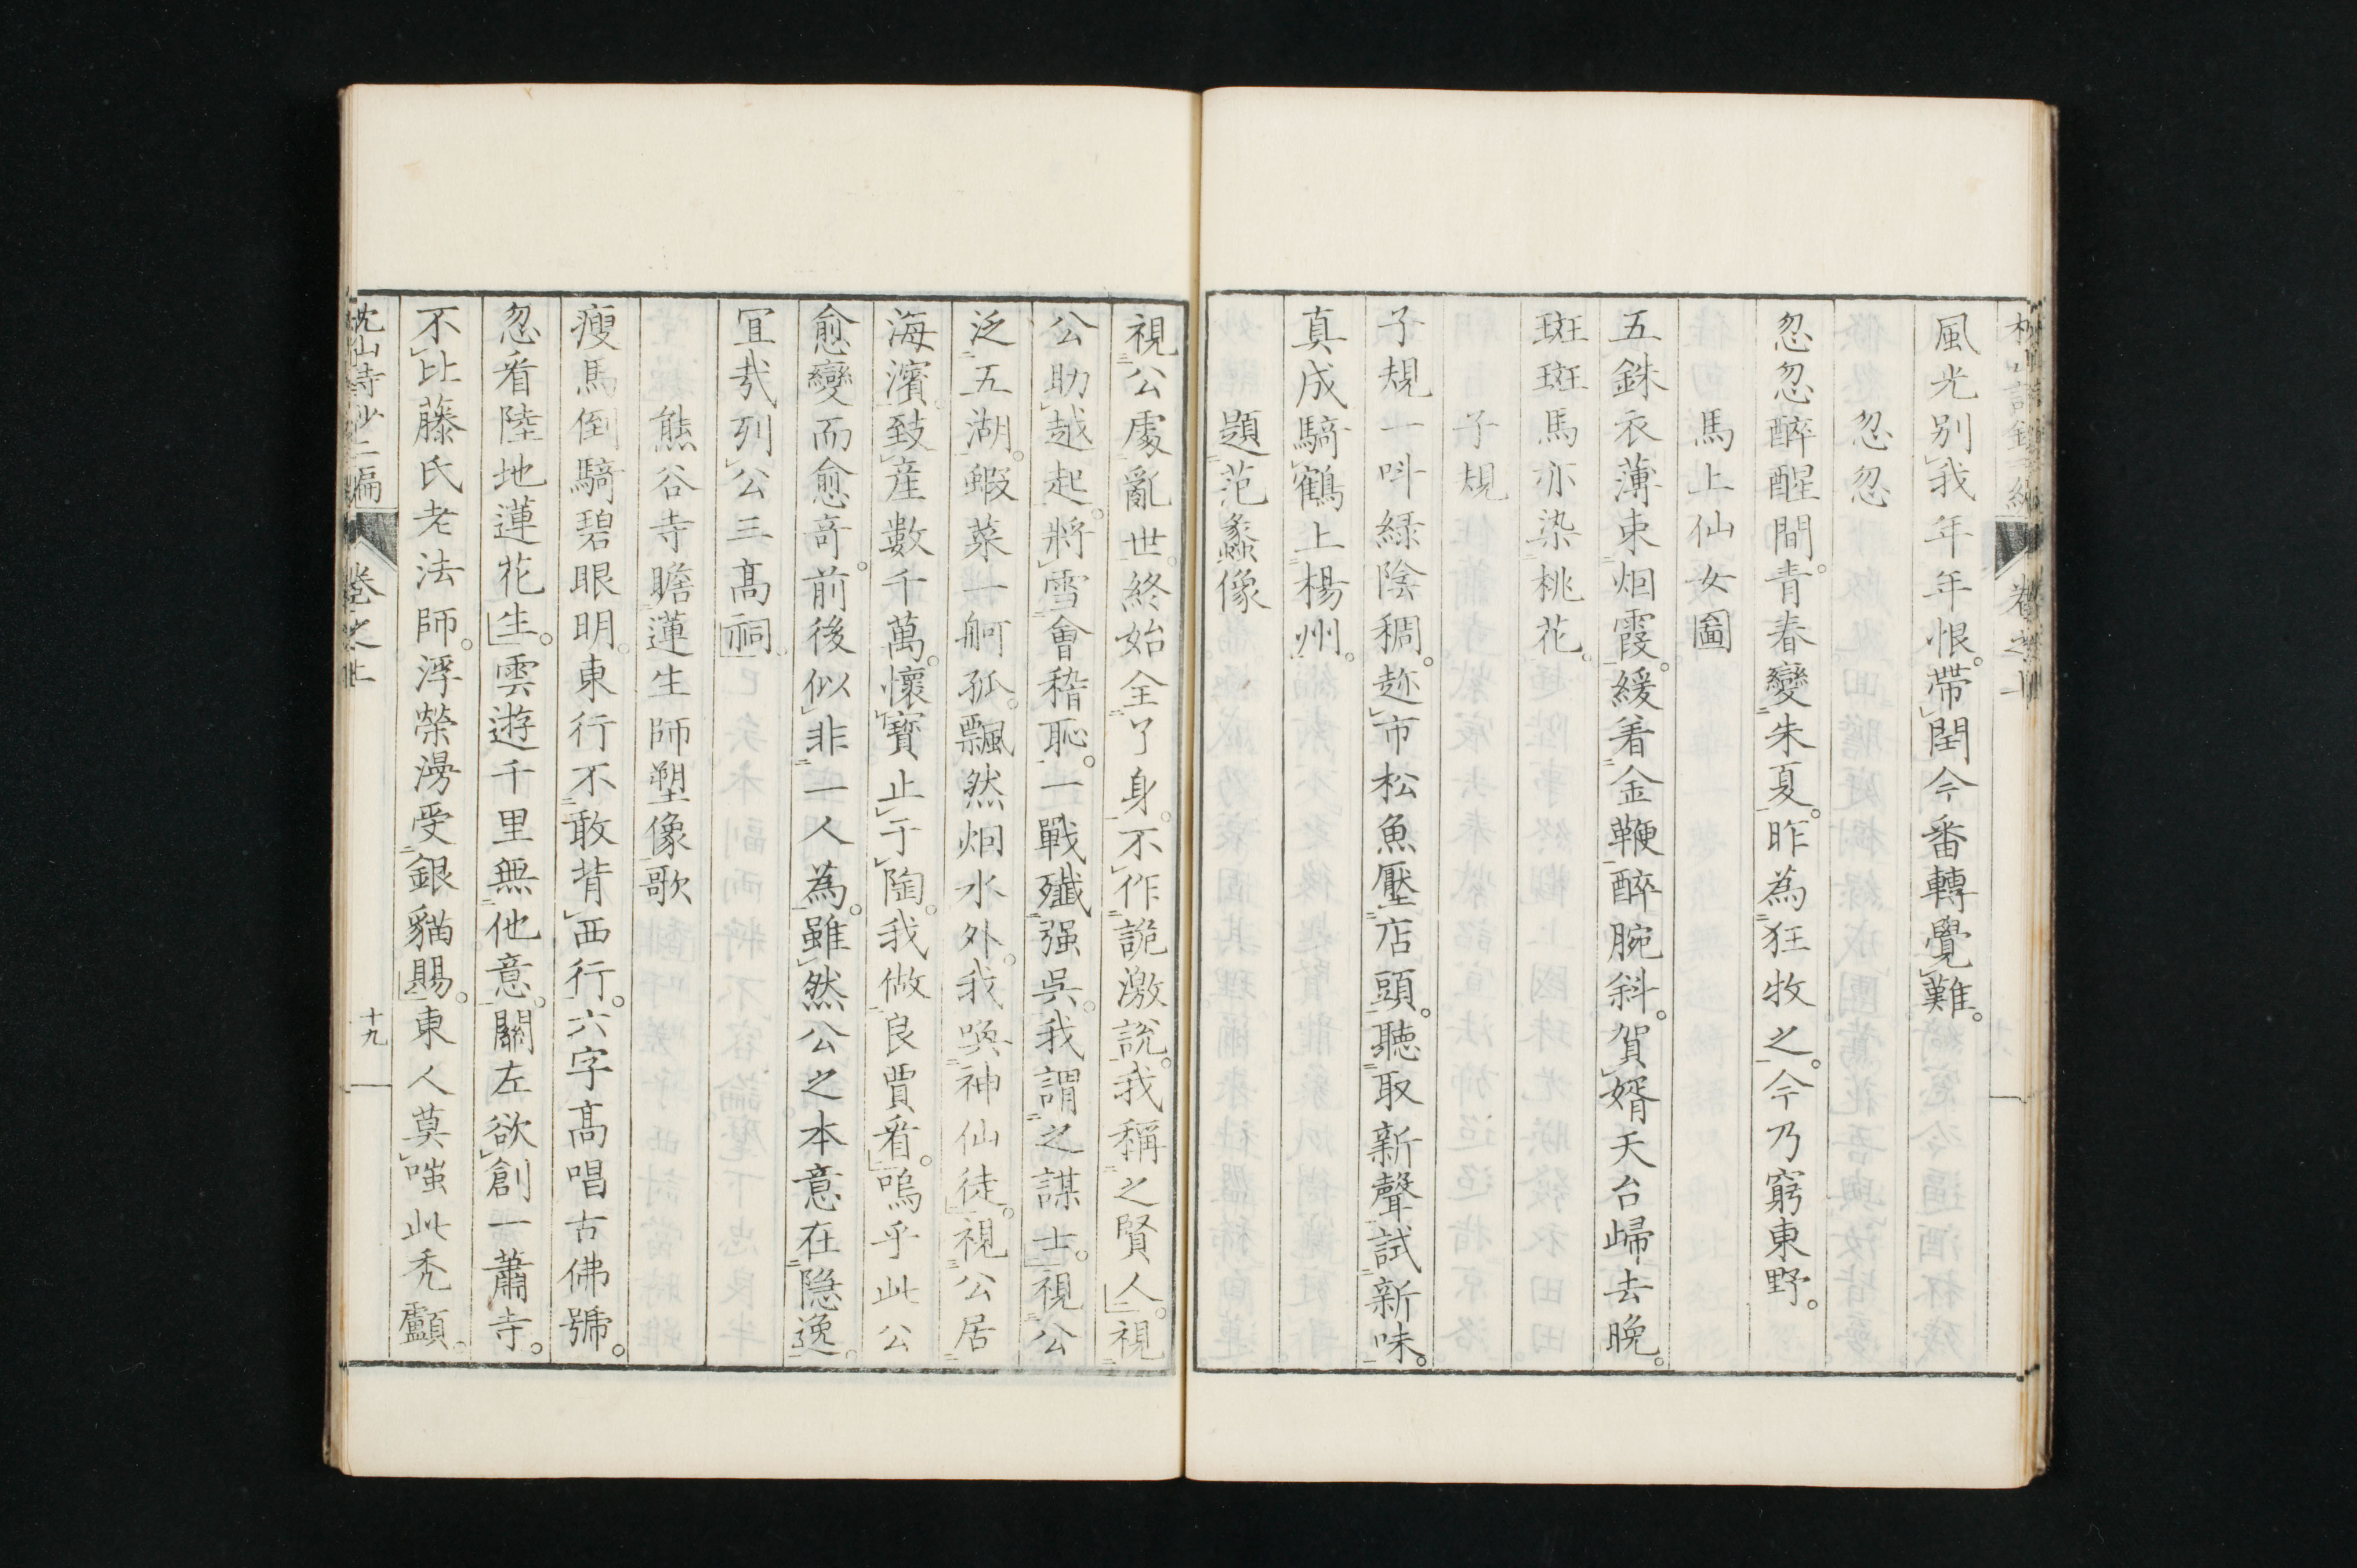 風光別我年年恨。帶閏今番轉覺難。
忽忽
忽忽醉醒間。青春變朱夏。昨為狂牧之。今乃窮東野。
馬上仙女圖
五銖衣薄束烟霞。緩着金鞭醉腕斜。賀婿天台歸去晚。
斑斑馬亦染桃花。
子規
子規一叫綠陰稠。趂市松魚壓店頭。聽取新聲試新味。
真成騎鶴上楊州。
題范蠡像
視公處亂世。終始全了身。不作詭激說。我稱之賢人。視
公助越起。將雪會稽恥。一戰殲强吳。我謂之謀士。視公
泛五湖。蝦菜一舸孤。飄然烟水外。我喚神仙徒。視公居
海濱。致産數千萬。懷寶止于陶。我做良賈看。嗚乎此公
愈變而愈奇。前後似非一人為。雖然公之本意在隐逸。
宜㢤列公三高祠。
熊谷寺瞻蓮生師塑像歌
瘦馬倒騎碧眼明。東行不敢背西行。六字高唱古佛號。
忽看陸地蓮花生。雲遊千里無他意。關左欲創一蕭寺。
不比藤氏老法師。浮榮漫受銀貓賜。東人莫嗤此禿顱。
枕山詩鈔二編 卷之上 十九